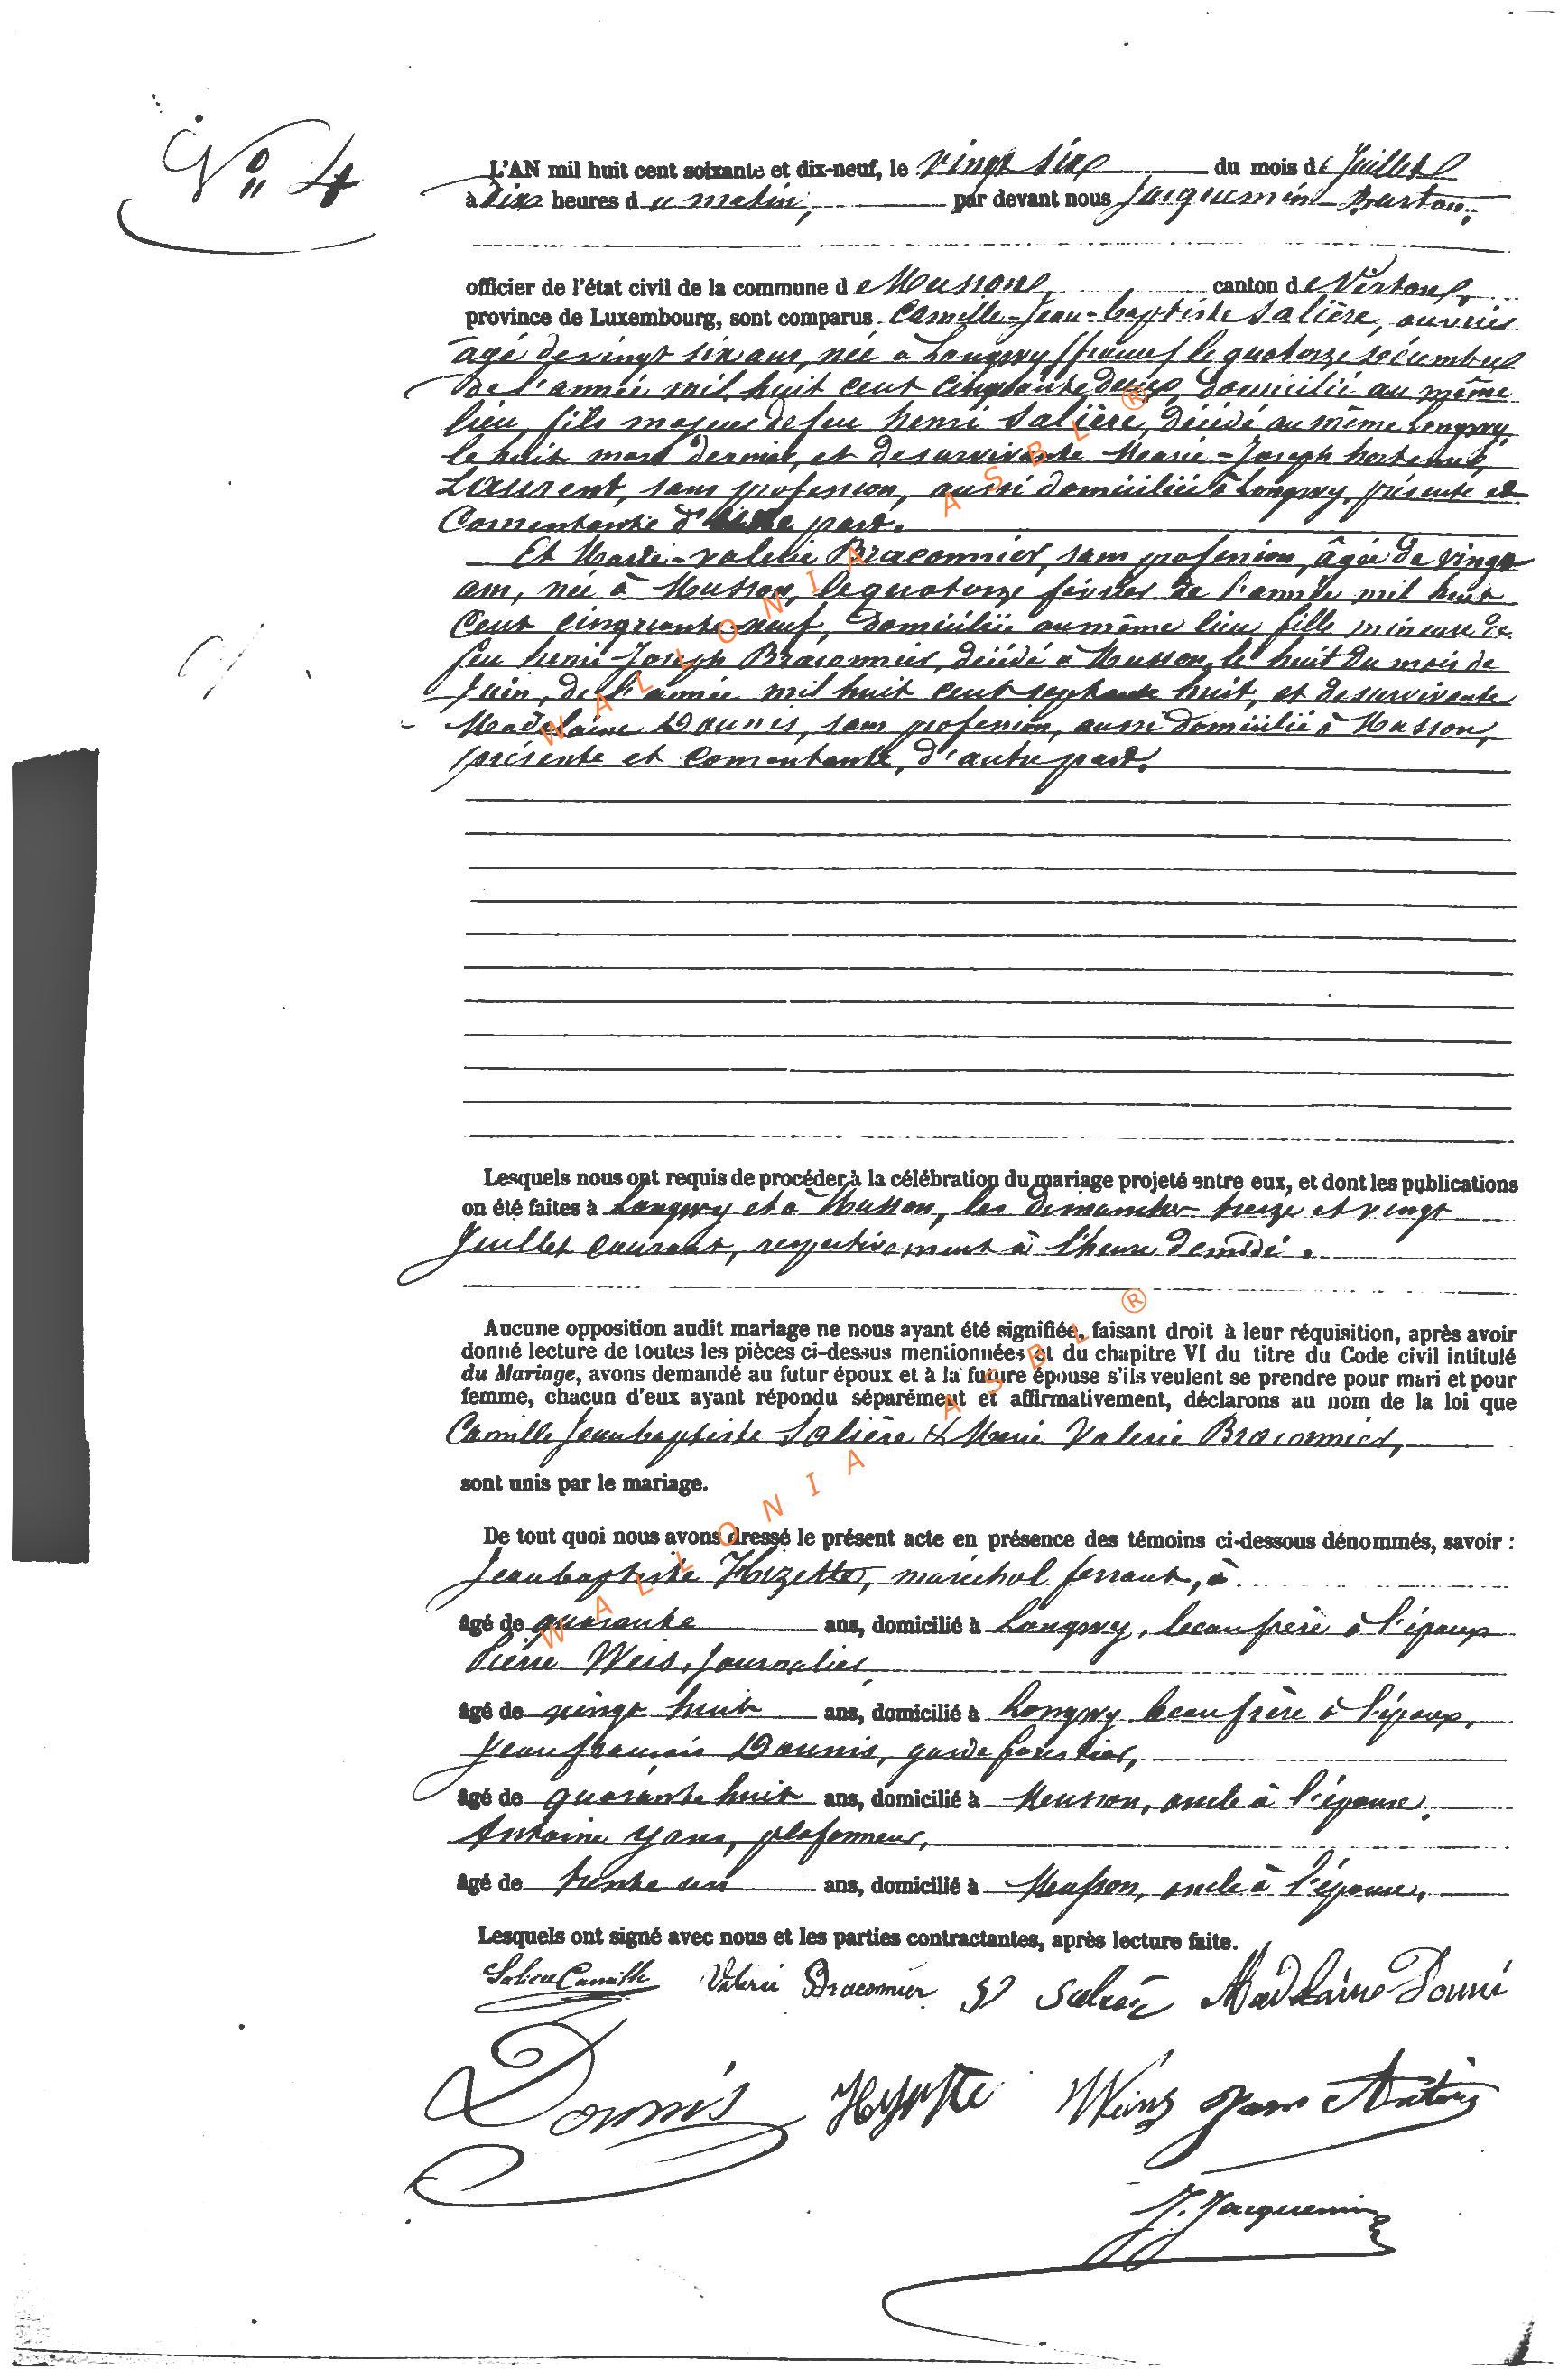 No 4
L'AN mil huit cent soixante et dix-neuf, le vingt six du mois de Juillet
à dix heures du matin, par devant nous Jacquemin-Burton,
officier de l'état civil de la commune de Musson, canton de Virton,
province de Luxembourg, sont comparus Camille-Jean-baptiste Salière, ouvrier
âgé de vingt six ans, né à Longwy (france) le quatorze décembre
de l'année mil huit cent cinquante deux, domicilié au même
lieu, fils majeur de feu henri Salière, décédé au même Longwy,
le huit mars dernier, et de survivante Marie-Joseph hortense
Laurent, sans profession, aussi domiciliée à Longwy, présente et
Consentante d' part.
Et Marie-valerie Braconnier, sans profession, âgée de vingt
ans, née à Musson, le quatorze février de l'année mil huit
Cent cinquante neuf, domiciliée au même lieu fille mineure de
feu henri-Joseph Braconnier, décédé à Musson, le huit du mois de
Juin, de l'année mil huit cent septante huit, et de survivante
Madelaine Dounis, sans profession, aussi domiciliée à Musson,
présente et consentante, d'autre part.
Lesquels nous ont requis de procéder à la célébration du mariage projeté entre eux, et dont les publications
on été faites à Longwy et à Musson, les dimanches treize et vingt
Juillet courant, respectivement à l'heure de midi.
Aucune opposition audit mariage ne nous ayant été signifiée, faisant droit à leur réquisition, après avoir
donné lecture de toutes les pièces ci-dessus mentionnées et du chapitre VI du titre du Code civil intitulé
du Mariage, avons demandé au futur époux et à la future épouse s'ils veulent se prendre pour mari et pour
femme, chacun d'eux ayant répondu séparément et affirmativement, déclarons au nom de la loi que
Camille Jeanbaptiste Salière & Marie Valerie Braconnier,
sont unis par le mariage.
De tout quoi nous avons dressé le présent acte en présence des témoins ci-dessous dénommés, savoir :
Jeanbaptiste Hizette, maréchal ferrant, à
âgé de quarante ans, domicilié à Longwy, beaufrère à l'époux
Pierre Weis, Journalier
âgé de vingt huit ans, domicilié à Longwy beaufrère à l'époux,
Jeanfrançois Dounis, garde forestier,
âgé de quarante huit ans, domicilié à Musson, oncle à l'épouse,
Antoine Yans, plafonneur,
âgé de trente un ans, domicilié à Musson, oncle à l'épouse,
Lesquels ont signé avec nous et les parties contractantes, après lecture faite.
Salière Camille Valerie Braconnier Madelaine Dounis
Dounis Hizette Weis Yans Antoine
J. Jacquemin
WALLONIA ASBL ®
WALLONIA ASBL ®